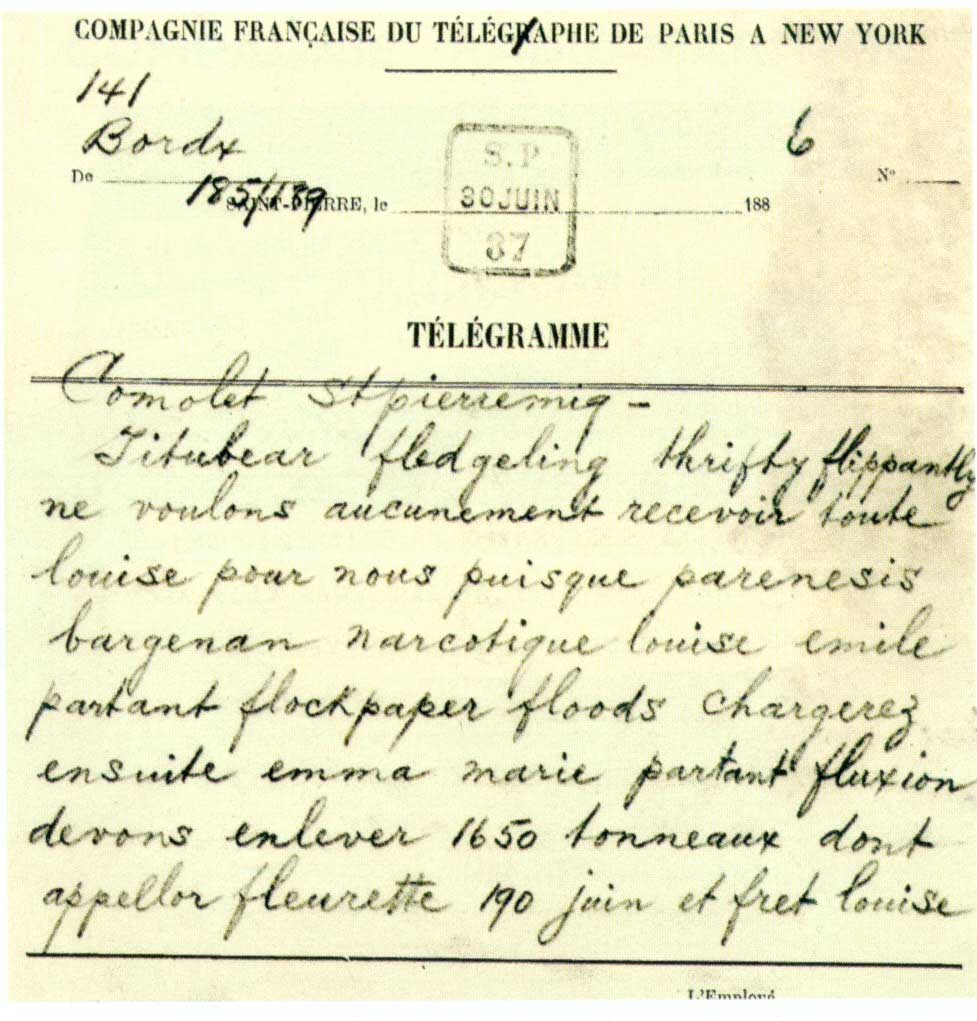 COMPAGNIE FRANÇAISE DU TÉLÉGRAPHE DE PARIS A NEW YORK
141
Bordx
6
De
Nº
185/139
SAINT-PIERRE, le
188
S.P
30 JUIN
87
TÉLÉGRAMME
Comolet Stpierremiq -
Titubear fledgeling thrifty flippantly
ne voulons aucunement recevoir toute
louise pour nous puisque parenesis
bargenan narcotique louise emile
partant flockpaper floods chargerez
ensuite emma marie partant fluxion
devons enlever 1650 tonneaux dont
appellor fleurette 190 juin et fret louise
L'Employé